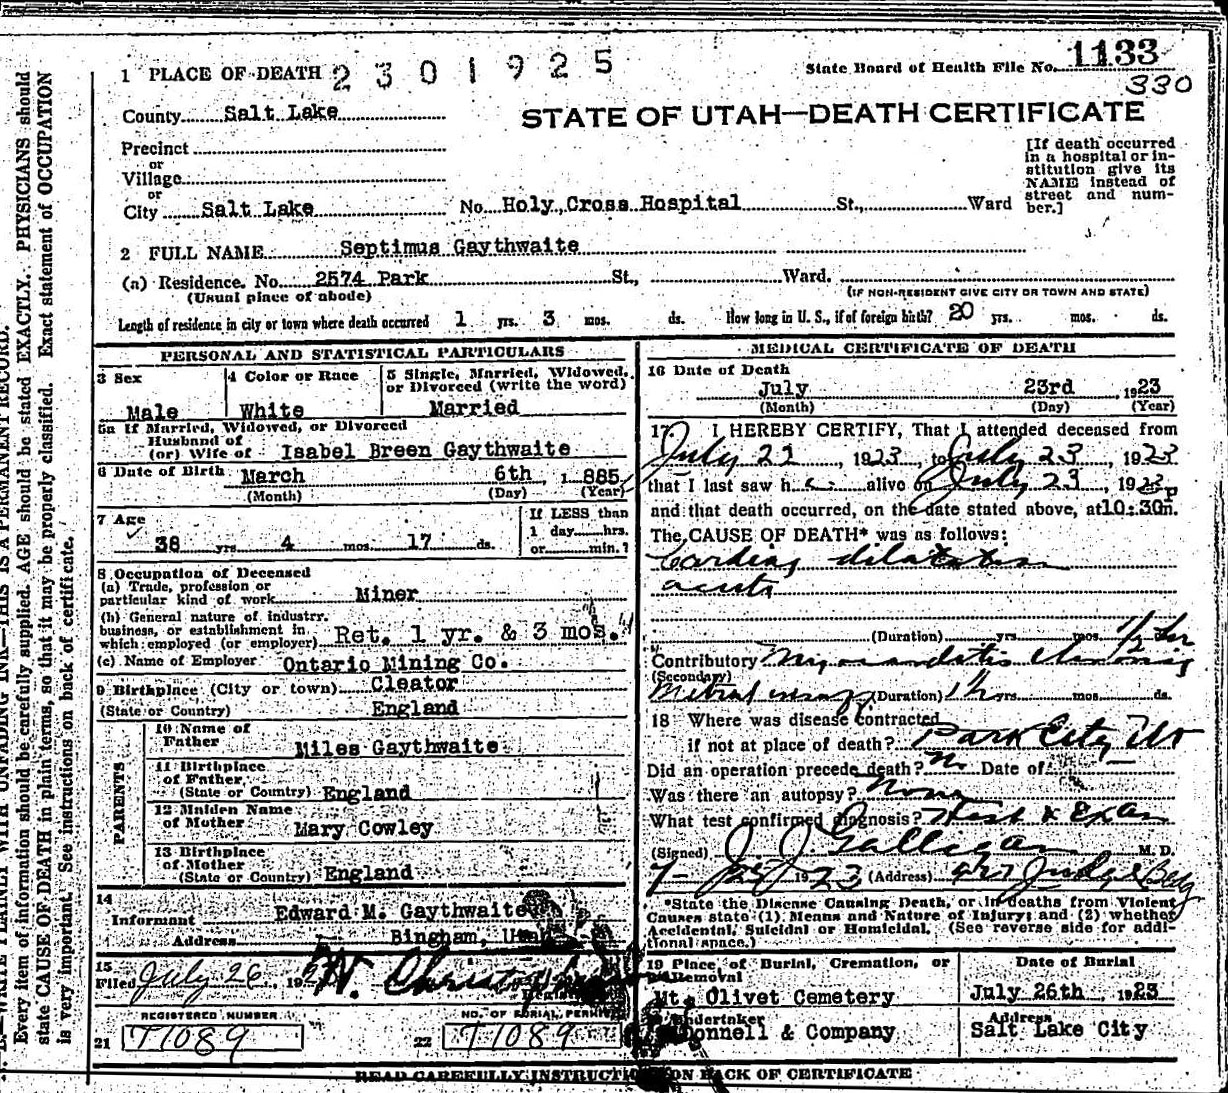 1133
State Board of Health File No.
330
1 PLACE OF DEATH 2301925
County Salt Lake
STATE OF UTAH—DEATH CERTIFICATE
Precinct
or
Village
or
City Salt Lake No. Holy Cross Hospital St., Ward
[If death occurred
in a hospital or in-
stitution give its
NAME instead of
street and num-
ber.]
2 FULL NAME Septimus Gaythwaite
(a) Residence. No. 2574 Park St., Ward.
(Usual place of abode) (IF NON-RESIDENT GIVE CITY OR TOWN AND STATE)
Length of residence in city or town where death occurred 1 yrs. 3 mos. ds. How long in U. S., if of foreign birth? 20 yrs. mos. ds.
PERSONAL AND STATISTICAL PARTICULARS
3 Sex 4 Color or Race 5 Single, Married, Widowed,
or Divorced (write the word)
Male White Married
5a If Married, Widowed, or Divorced
Husband of
(or) Wife of Isabel Breen Gaythwaite
6 Date of Birth March 6th, 1885
(Month) (Day) (Year)
7 Age If LESS than
1 day hrs.
38 yrs 4 mos. 17 ds. or min.?
8 Occupation of Deceased
(a) Trade, profession or
particular kind of work Miner
(b) General nature of industry.
business, or establishment in
which employed (or employer) Ret. 1 yr. & 3 mos.
(c) Name of Employer Ontario Mining Co.
9 Birthplace (City or town) Cleator
(State or Country) England
PARENTS
10 Name of
Father Miles Gaythwaite
11 Birthplace
of Father
(State or Country) England
12 Maiden Name
of Mother Mary Cowley
13 Birthplace
of Mother
(State or Country) England
14
Informant Edward M. Gaythwaite
Address Bingham, Utah
15
Filed July 26, 19
REGISTERED NUMBER NO. OF BURIAL PERMIT
21 T1089 22 T1089
MEDICAL CERTIFICATE OF DEATH
16 Date of Death
July 23rd 1923
(Month) (Day) (Year)
17 I HEREBY CERTIFY, That I attended deceased from
July 22, 1923, to July 23, 1923
that I last saw h alive on July 23, 1923
and that death occurred, on the date stated above, at 10:30p m.
The CAUSE OF DEATH* was as follows:
Cardiac dilatation
acute
(Duration) yrs. mos. 1/2 hr
Contributory Myocarditis chronic
(Secondary)
Mitral (Duration) 1½ yrs. mos. ds.
18 Where was disease contracted
if not at place of death? Park City Ut
Did an operation precede death? No Date of
Was there an autopsy? None
What test confirmed diagnosis? Hist & Exam
(Signed) J. J. Galligan M. D.
7-25 1923 (Address) Judge Bldg
*State the Disease Causing Death, or in deaths from Violent
Causes state (1) Means and Nature of Injury; and (2) whether
Accidental, Suicidal or Homicidal. (See reverse side for addi-
tional space.)
19 Place of Burial, Cremation, or Date of Burial
Removal
Mt. Olivet Cemetery July 26th, 1923
Undertaker Address
onnell & Company Salt Lake City
READ CAREFULLY INSTRUCTIONS ON BACK OF CERTIFICATE
WRITE PLAINLY WITH UNFADING INK—THIS IS A PERMANENT RECORD.
Every item of information should be carefully supplied. AGE should be stated EXACTLY. PHYSICIANS should
state CAUSE OF DEATH in plain terms, so that it may be properly classified. Exact statement of OCCUPATION
is very important. See instructions on back of certificate.